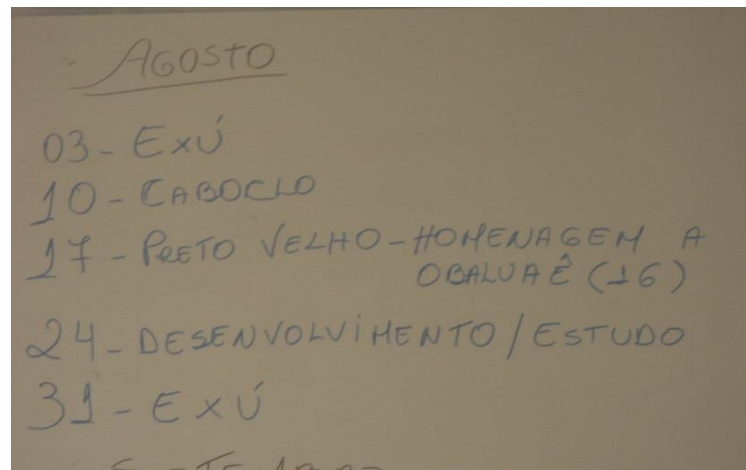 AGOSTO
03 - EXÚ
10 - CABOCLO
17 - PRETO VELHO - HOMENAGEM A
OBALUAÊ (16)
24 - DESENVOLVIMENTO / ESTUDO
31 - EXÚ